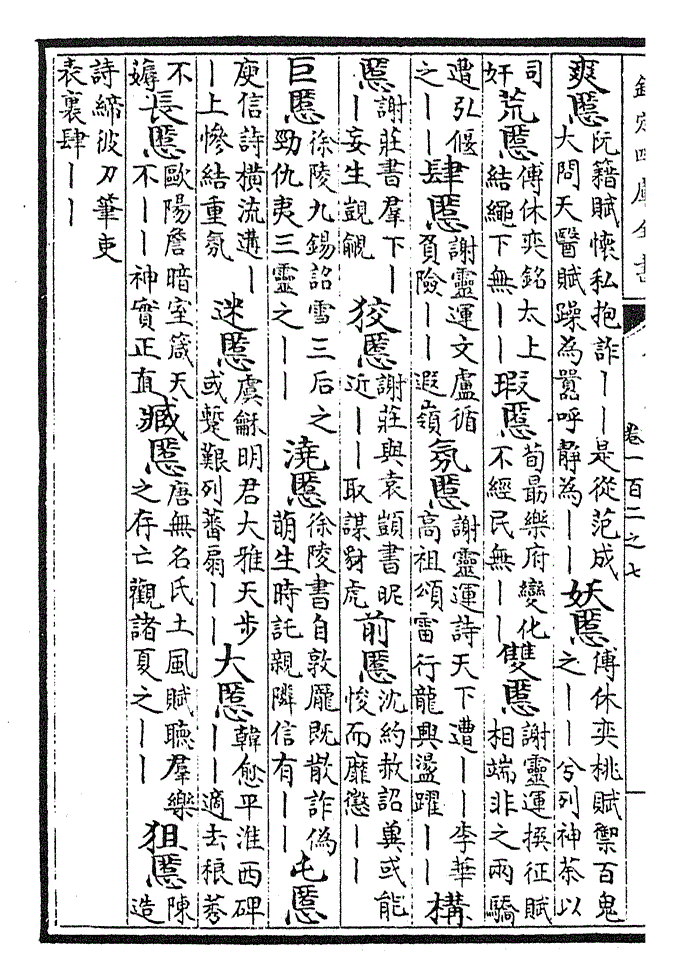 欽定四庫全書 卷一百二之七
爽慝阮籍賦懷私抱詐丨丨是從范成大問天醫賦躁為囂呼靜為丨丨妖慝傅休奕桃賦禦百鬼之丨丨兮列神荼以
司奸荒慝傅休奕銘太上結繩下無丨丨瑕慝荀勗樂府變化不經民無丨丨雙慝謝靈運撰征賦相端非之兩驕
遭弘偃之丨丨肆慝謝靈運文盧循負險丨丨遐嶺氛慝謝靈運詩天下遭丨丨李華高祖頌雷行龍興盪躍丨丨構
慝謝莊書羣下丨丨妄生覬覦狡慝謝莊與袁顗書昵近丨丨取謀豺虎前慝沈約赦詔冀或能悛而靡懲丨丨
巨慝徐陵九錫詔雪三后之勁仇夷三靈之丨丨澆慝徐陵書自敦龎既散詐偽萌生時託親隣信有丨丨屯慝
庾信詩橫流遘丨丨上慘結重氛迷慝虞龢明君大雅天步或蹔艱列蕃扇丨丨大慝韓愈平淮西碑丨丨適去稂莠
不薅長慝歐陽詹暗室箴天不丨丨神實正直臧慝唐無名氏土風賦聽羣樂之存亡觀諸夏之丨丨狙慝陳造
詩締彼刀筆吏表裏肆丨丨